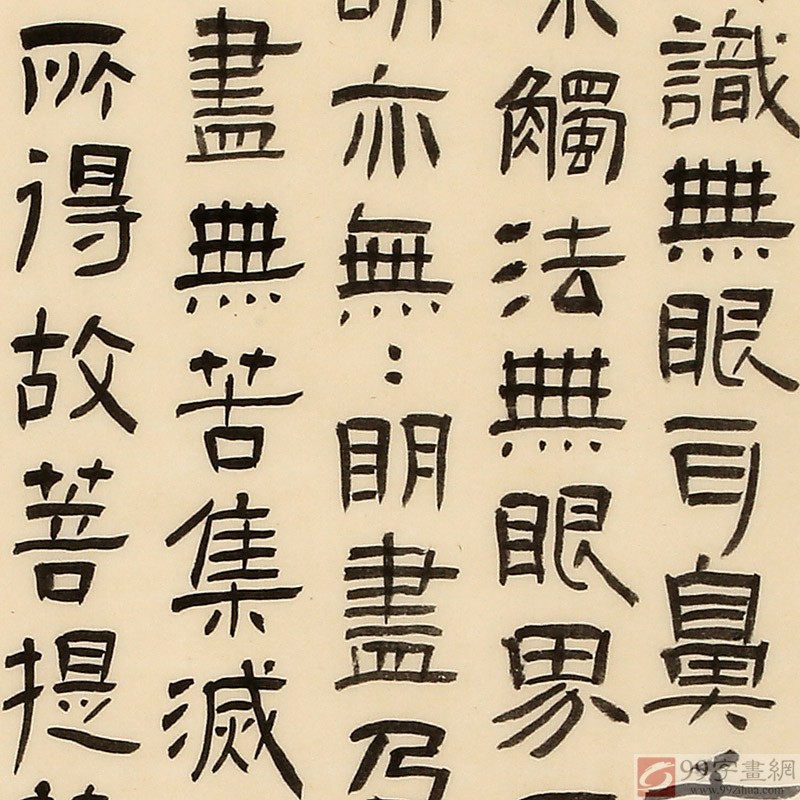 識無眼耳鼻
觸法無眼界
亦無：明盡乃
盡無苦集滅
所得故菩提
99字畫網
www.99zihua.com